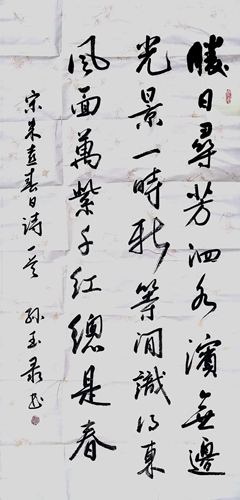 勝日尋芳泗水濱無邊
光景一時新等閒識得東
風面萬紫千紅總是春
宋朱熹春日诗一首 孙玉录书